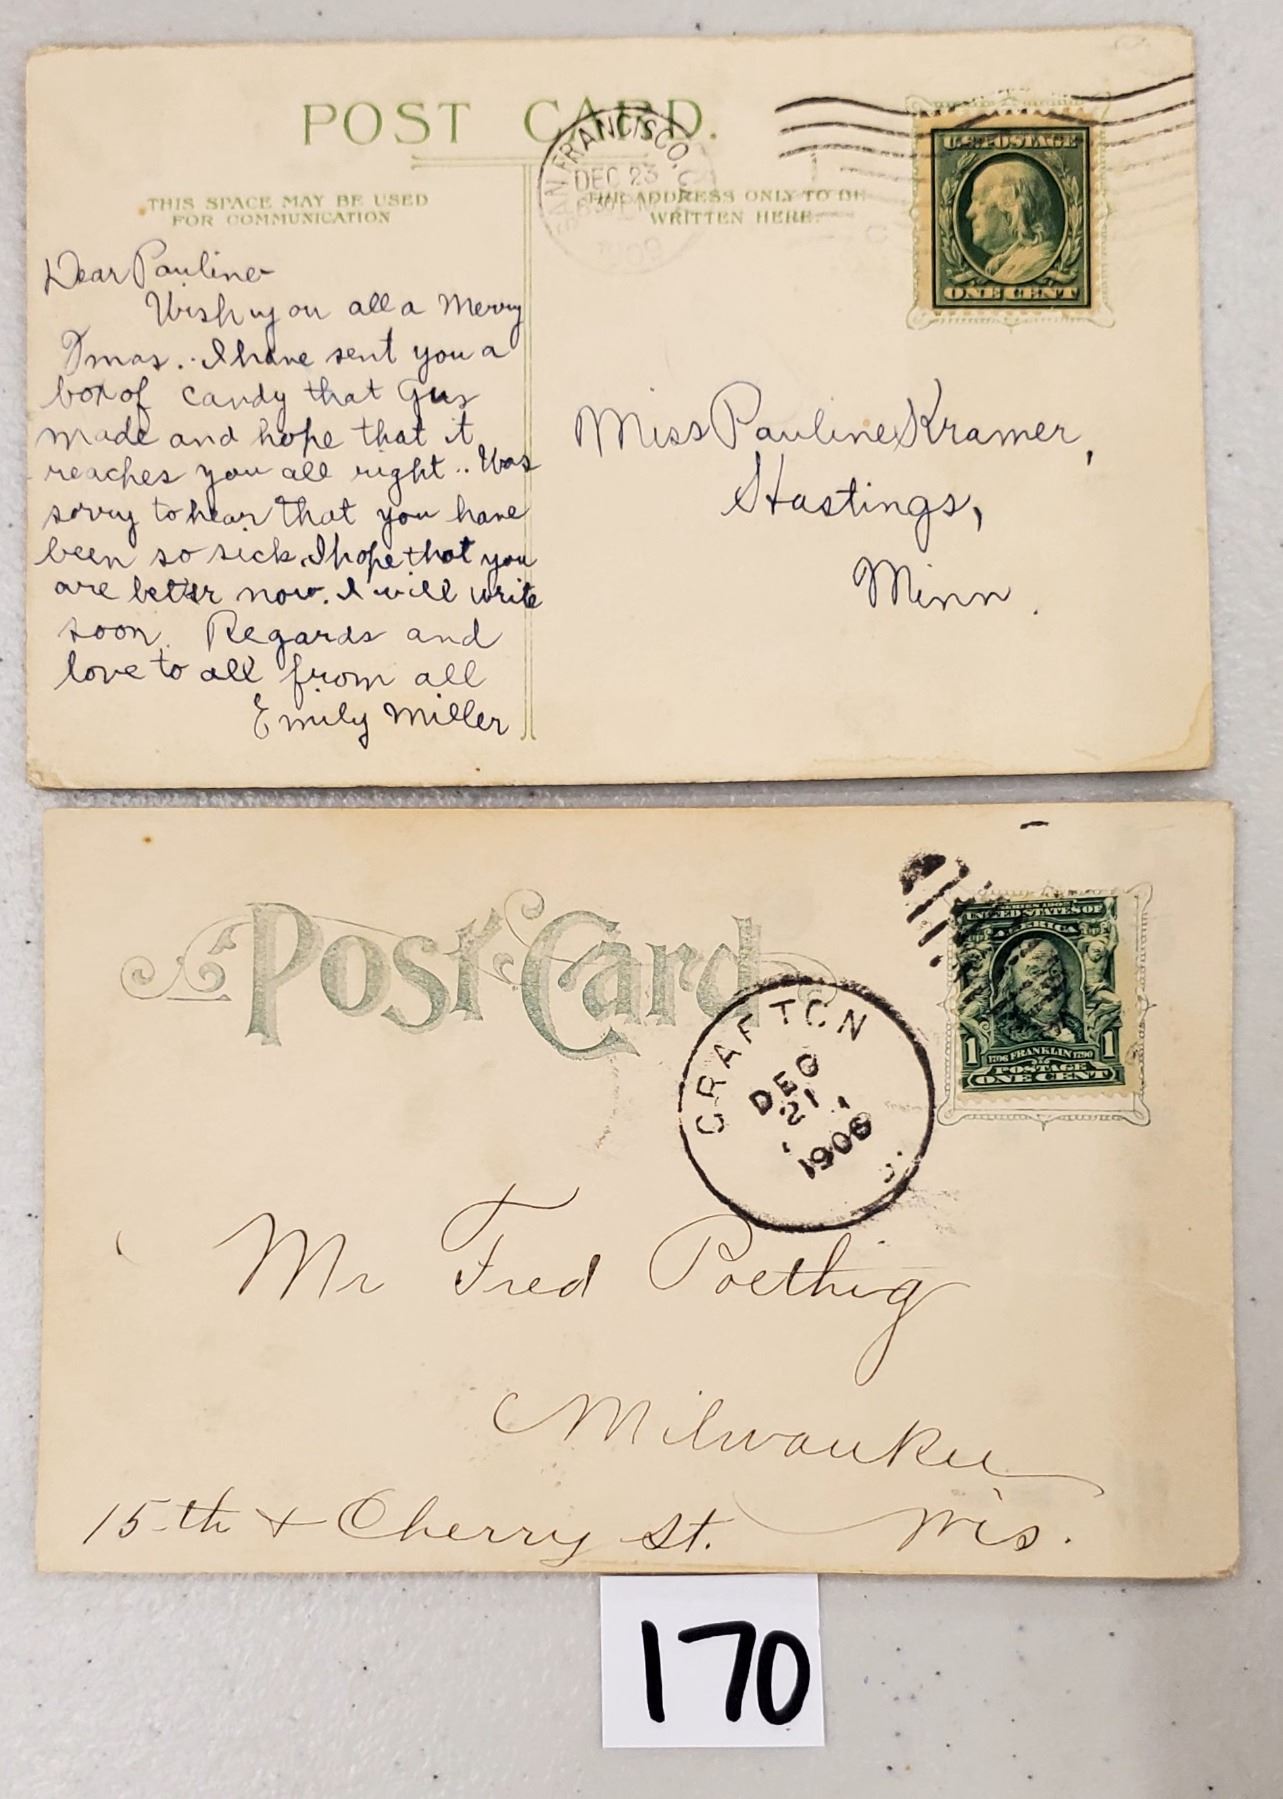 POST CARD.
SAN FRANCISCO, C
DEC 23
630 PM
1909
U.S. POSTAGE
ONE CENT
THIS SPACE MAY BE USED
FOR COMMUNICATION
THE ADDRESS ONLY TO BE
WRITTEN HERE.
Dear Pauline
Wish you all a Merry
Xmas. . I have sent you a
box of candy that Gus
made and hope that it
reaches you all right . . Was
sorry to hear that you have
been so sick, I hope that you
are better now. I will write
soon. Regards and
love to all from all
Emily Miller
Miss Pauline Kramer,
Hastings,
Minn.
Post Card
GRAFTON
DEC
21
1906
SERIES 1902
UNITED STATES OF
AMERICA
1 1706 FRANKLIN 1790 1
POSTAGE
ONE CENT
Mr Fred Poethig
Milwaukee
15-th + Cherry St. Wis.
170